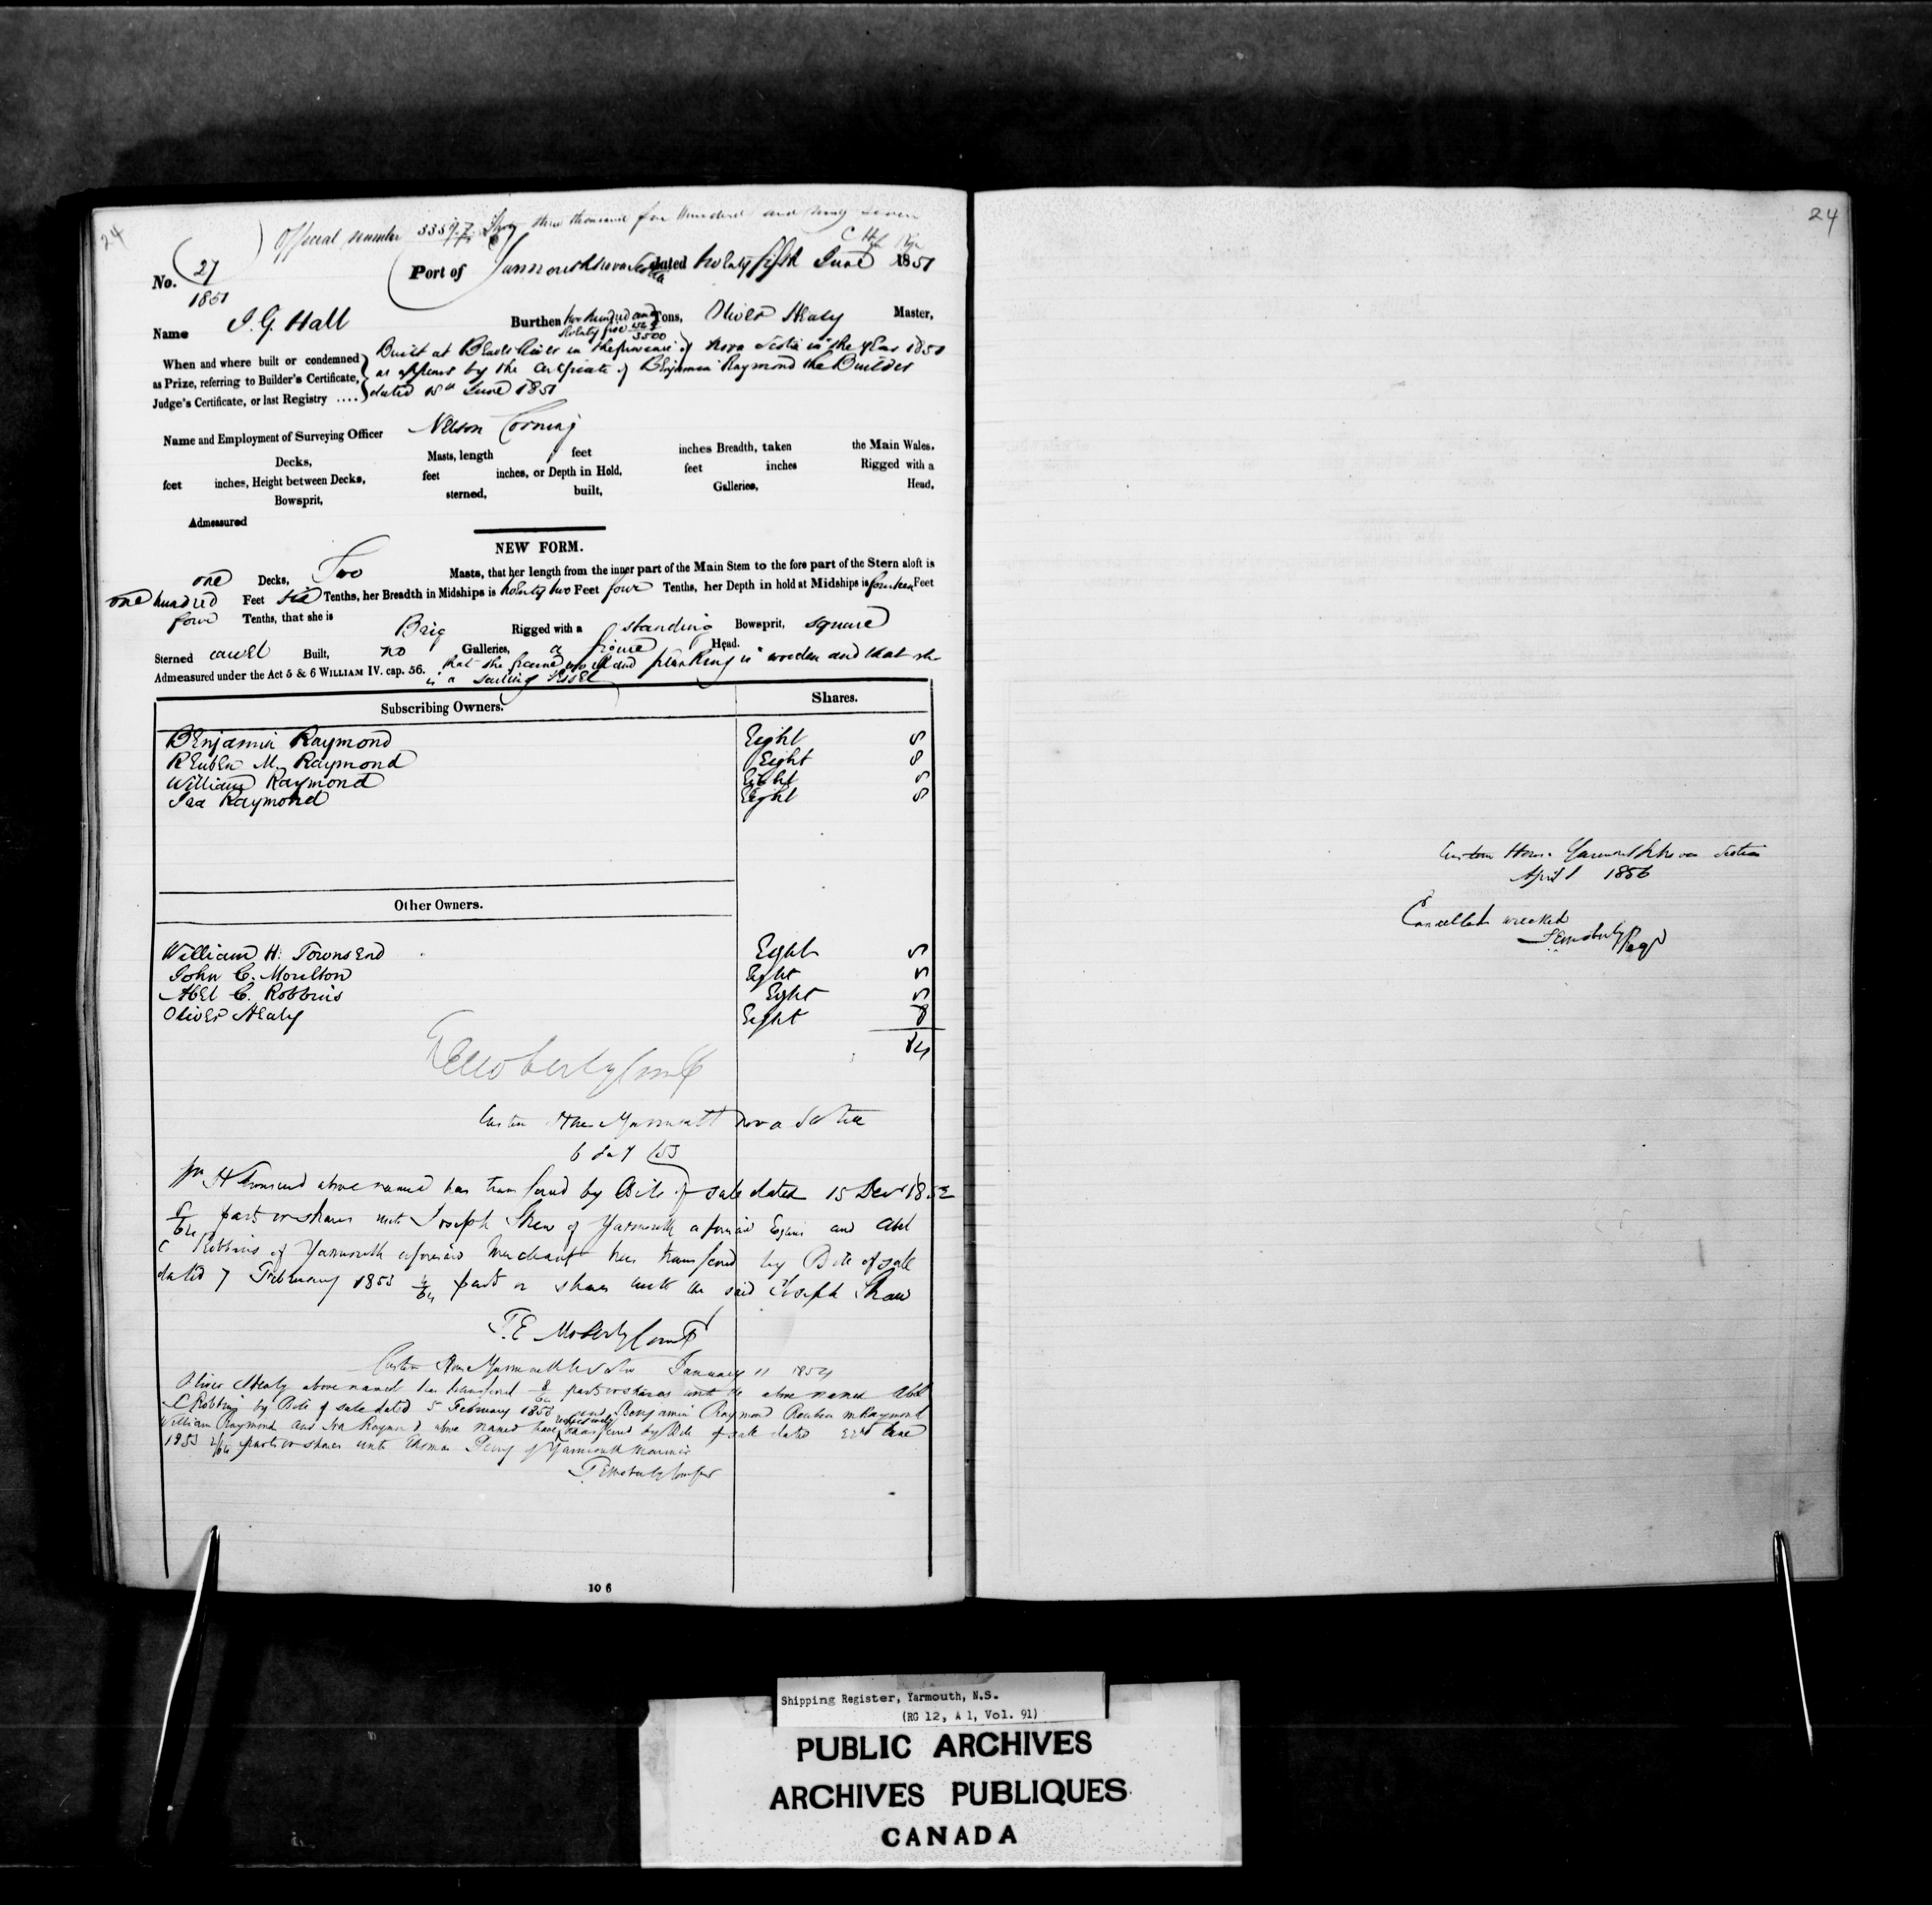 24
Official number 33597 Thirty three thousand five hundred and ninety seven
No. 27 Port of Yarmouth Nova Scotia dated twenty fifth June 1851
1851
Name J. G. Hall Burthen two hundred and twenty five Tons, Oliver Healy Master,
3500
When and where built or condemned Built at Beaver River in the province of Nova Scotia in the year 1851
as Prize, referring to Builder's Certificate, as appears by the Certificate of Benjamin Raymond the Builder
Judge's Certificate, or last Registry .... dated June 1851
Name and Employment of Surveying Officer Nelson Corning
Decks, Masts, length feet inches Breadth, taken the Main Wales.
feet inches, Height between Decks, feet inches, or Depth in Hold, feet inches Rigged with a
Bowsprit, sterned, built, Galleries, Head,
Admeasured
NEW FORM.
one Decks, Two Masts, that her length from the inner part of the Main Stem to the fore part of the Stern aloft is
one hundred Feet six Tenths, her Breadth in Midships is twenty two Feet four Tenths, her Depth in hold at Midships is fourteen Feet
four Tenths, that she is Brig Rigged with a standing Bowsprit, square
Sterned carvel Built, no Galleries, a figure Head.
Admeasured under the Act 5 & 6 WILLIAM IV. cap. 56. that the frame work and planking is wooden and that she
is a sailing vessel
Subscribing Owners. Shares.
Benjamin Raymond Eight 8
Reuben M. Raymond Eight 8
William Raymond Eight 8
Ira Raymond Eight 8
Other Owners.
William H. Townsend Eight 8
John C. Moulton Eight 8
Abel C. Robbins Eight 8
Oliver Healy Eight 8
64
T E Moberly Comp
Custom House Yarmouth Nova Scotia
Wm H Townsend above named has transferred by Bill of sale dated 15 Decr 1852
8/64 parts or shares unto Joseph Shaw of Yarmouth aforesaid Esquire and Abel
C Robbins of Yarmouth aforesaid Merchant has transferred by Bill of sale
dated 7 February 1853 4/64 parts or shares unto the said Joseph Shaw
T. E Moberly Comp
Custom House Yarmouth N Scotia January 11 1854
Oliver Healy above named has transferred 8/64 parts or shares unto the above named Abel
C Robbins by Bill of sale dated 5 February 1853 and Benjamin Raymond Reuben M Raymond
William Raymond and Ira Raymond above named have respectively transferred by Bill of sale dated 22nd June
1853 2/64 parts or shares unto Thomas Perry of Yarmouth Mariner
T E Moberly Compr
10 6
24
Custom House Yarmouth Nova Scotia
April 1 1856
Cancelled wrecked
T E Moberly Regr
Shipping Register, Yarmouth, N.S.
(RG 12, A 1, Vol. 91)
PUBLIC ARCHIVES
ARCHIVES PUBLIQUES
CANADA